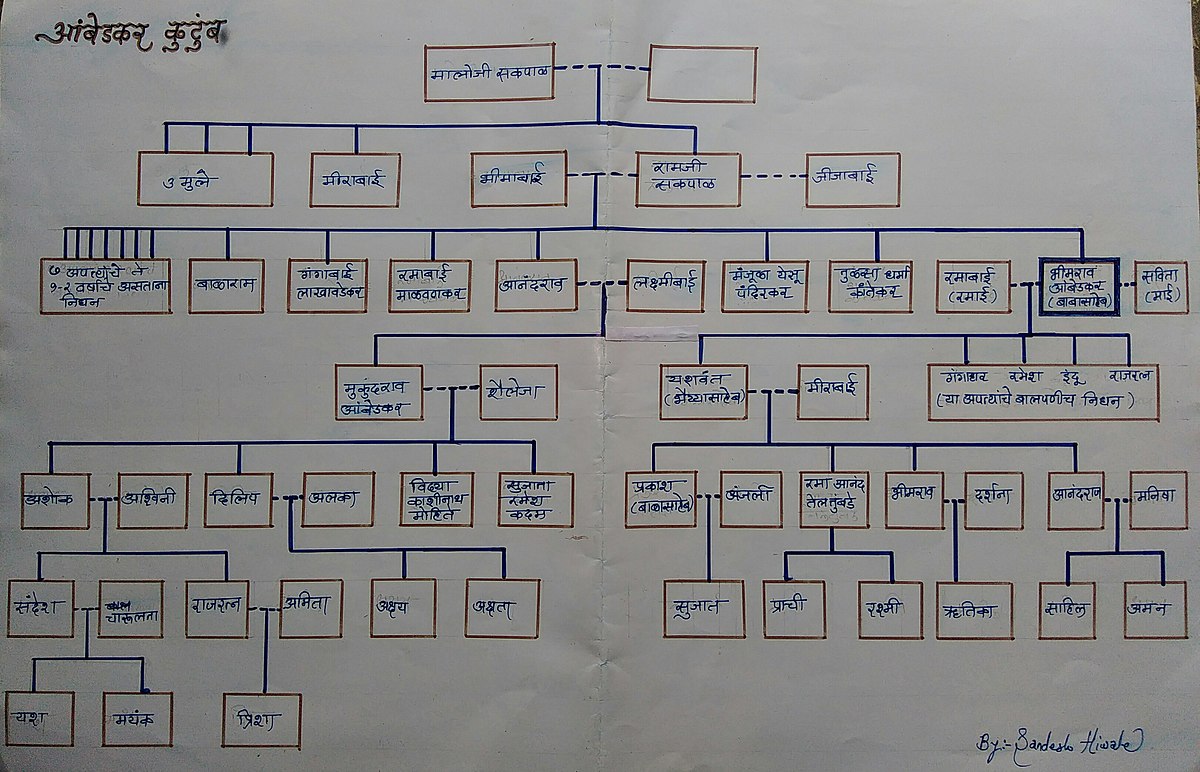 आंबेडकर कुटुंब
मालोजी सकपाळ
३ मुले
मीराबाई
भीमाबाई
रामजी
सकपाळ
जीजाबाई
७ अपत्यांचे ते
१-२ वर्षाचे असताना
निधन
बाळाराम
गंगाबाई
लाखावडेकर
रमाबाई
माळवणकर
आनंदराव
लक्ष्मीबाई
मंजूळा येसू
पंदिरकर
तुळसा धर्मा
कांतेकर
रमाबाई
(रमाई)
भीमराव
आंबेडकर
(बाबासाहेब)
सविता
(माई)
मुकुंदराव
आंबेडकर
शैलेजा
यशवंत
(भैय्यासाहेब)
मीराबाई
गंगाधर रमेश इंदू राजरत्न
(या अपत्यांचे बालपणीच निधन)
अशोक
अश्विनी
दिलिप
अलका
विद्या
काशीनाथ
मोहिते
सुजाता
रमेश
कदम
प्रकाश
(बाळासाहेब)
अंजली
रमा आनंद
तेलतुंबडे
भीमराव
दर्शना
आनंदराज
मनिषा
संदेश
चारूलता
राजरत्न
अमिता
अक्षय
अक्षता
सुजात
प्राची
रश्मी
ऋतिका
साहिल
अमन
यश
मयंक
त्रिशा
By:- Sandesh Hiwale